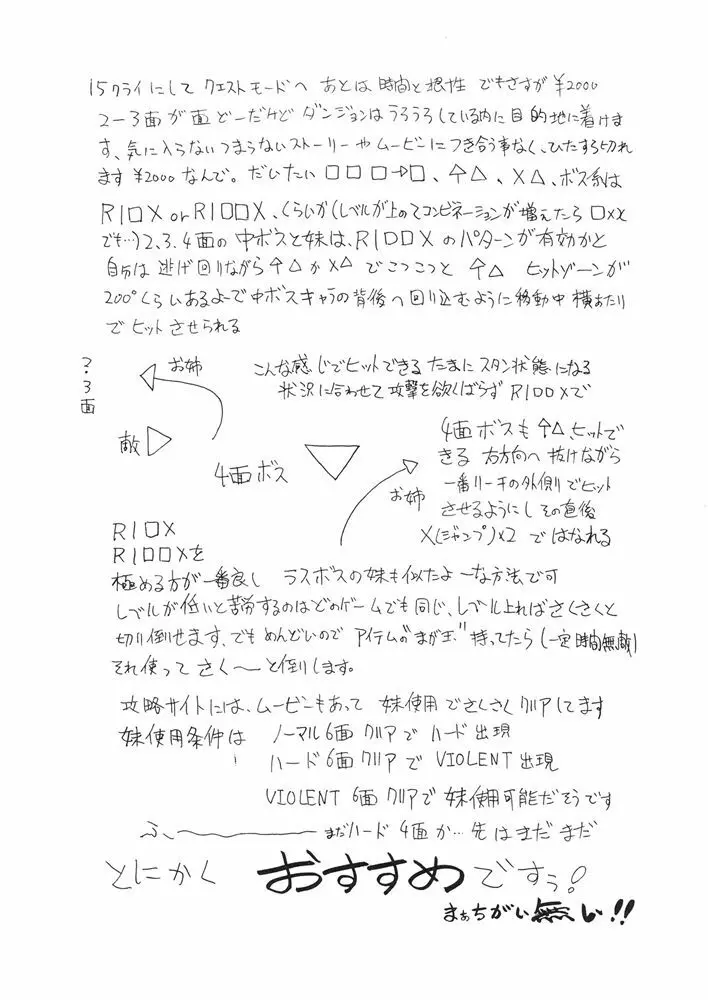 15クライにして クエストモードへ あとは 時間と根性 でもさすが ¥2000
2-3面が面どーだけど ダンジョンはうろうろしている内に目的地に着けま
す、気に入らないつまらないストーリーやムービーにつき合う事なく、ひたすら切れ
ます ¥2000 なんで。だいたい □ □ □→□、↑△、×△、ボス系は
R1□× or R1□□×、くらいか(レベルが上がってコンビネーションが増えたら □××
でも…) 2、3、4面の中ボスと妹は、R1□□× のパターンが有効かと
自分は 逃げ回りながら ↑△ か ×△ でこつこつと ↑△ ヒットゾーンが
200°くらいあるよーで中ボスキャラの背後へ回り込むように移動中 横あたり
で ヒット させられる
?・3面
お姉
敵
こんな感じでヒットできる たまに スタン状態になる
状況に合わせて攻撃を欲ばらず R1□□×で
4面ボス
お姉
4面ボスも ↑△、ヒットで
きる 右方向へ 抜けながら
一番リーチの外側でヒット
させるようにし その直後
×(ジャンプ)×2 ではなれる
R1□×
R1□□×を
極める方が一番良し ラスボスの妹も似たよーな方法で可
レベルが低いと苦労するのはどのゲームでも同じ、レベル上ればさくさくと
切り倒せます、でも めんどいので アイテムの"まが玉"持ってたら (一定時間無敵)
それ使って さく〜と倒します。
攻略サイトには、ムービーもあって 妹使用 でさくさくクリアしてます
妹使用条件は ノーマル6面 クリアで ハード 出現
ハード 6面 クリア で VIOLENT 出現
VIOLENT 6面 クリアで 妹使用可能だそうです
ふ、〜 まだハード 4面か… 先はまだまだ
とにかく おすすめですぅ!
まぁちがい無し!!